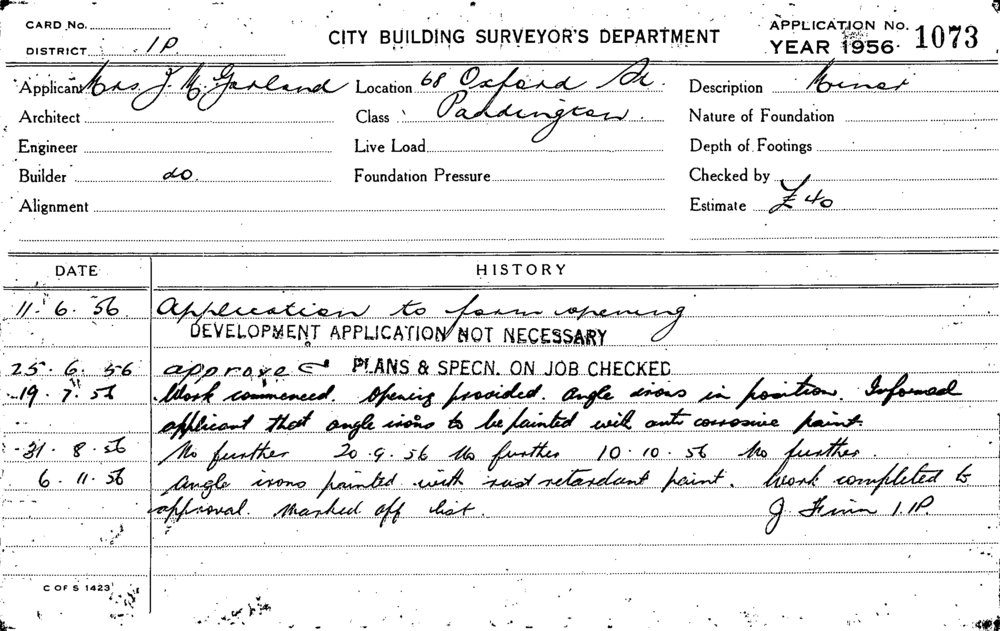 CARD No.
DISTRICT 1P
CITY BUILDING SURVEYOR'S DEPARTMENT
APPLICATION No. 1073
YEAR 1956
Applicant Mrs. J. M. Garland Location 68 Oxford St. Description Minor
Architect Class Paddington Nature of Foundation
Engineer Live Load Depth of Footings
Builder do. Foundation Pressure Checked by
Alignment Estimate £40
DATE HISTORY
11. 6. 56 Application to form opening
DEVELOPMENT APPLICATION NOT NECESSARY
25. 6. 56 approved PLANS & SPECN. ON JOB CHECKED
19. 7. 56 Work commenced. Opening provided. Angle irons in position. Informed
applicant that angle irons to be painted with anti corrosive paint.
31. 8. 56 No further 20.9.56 No further 10.10.56 No further.
6. 11. 56 Angle irons painted with rust retardant paint. Work completed to
approval. Marked off list. J 1.1P.
C OF S 1423